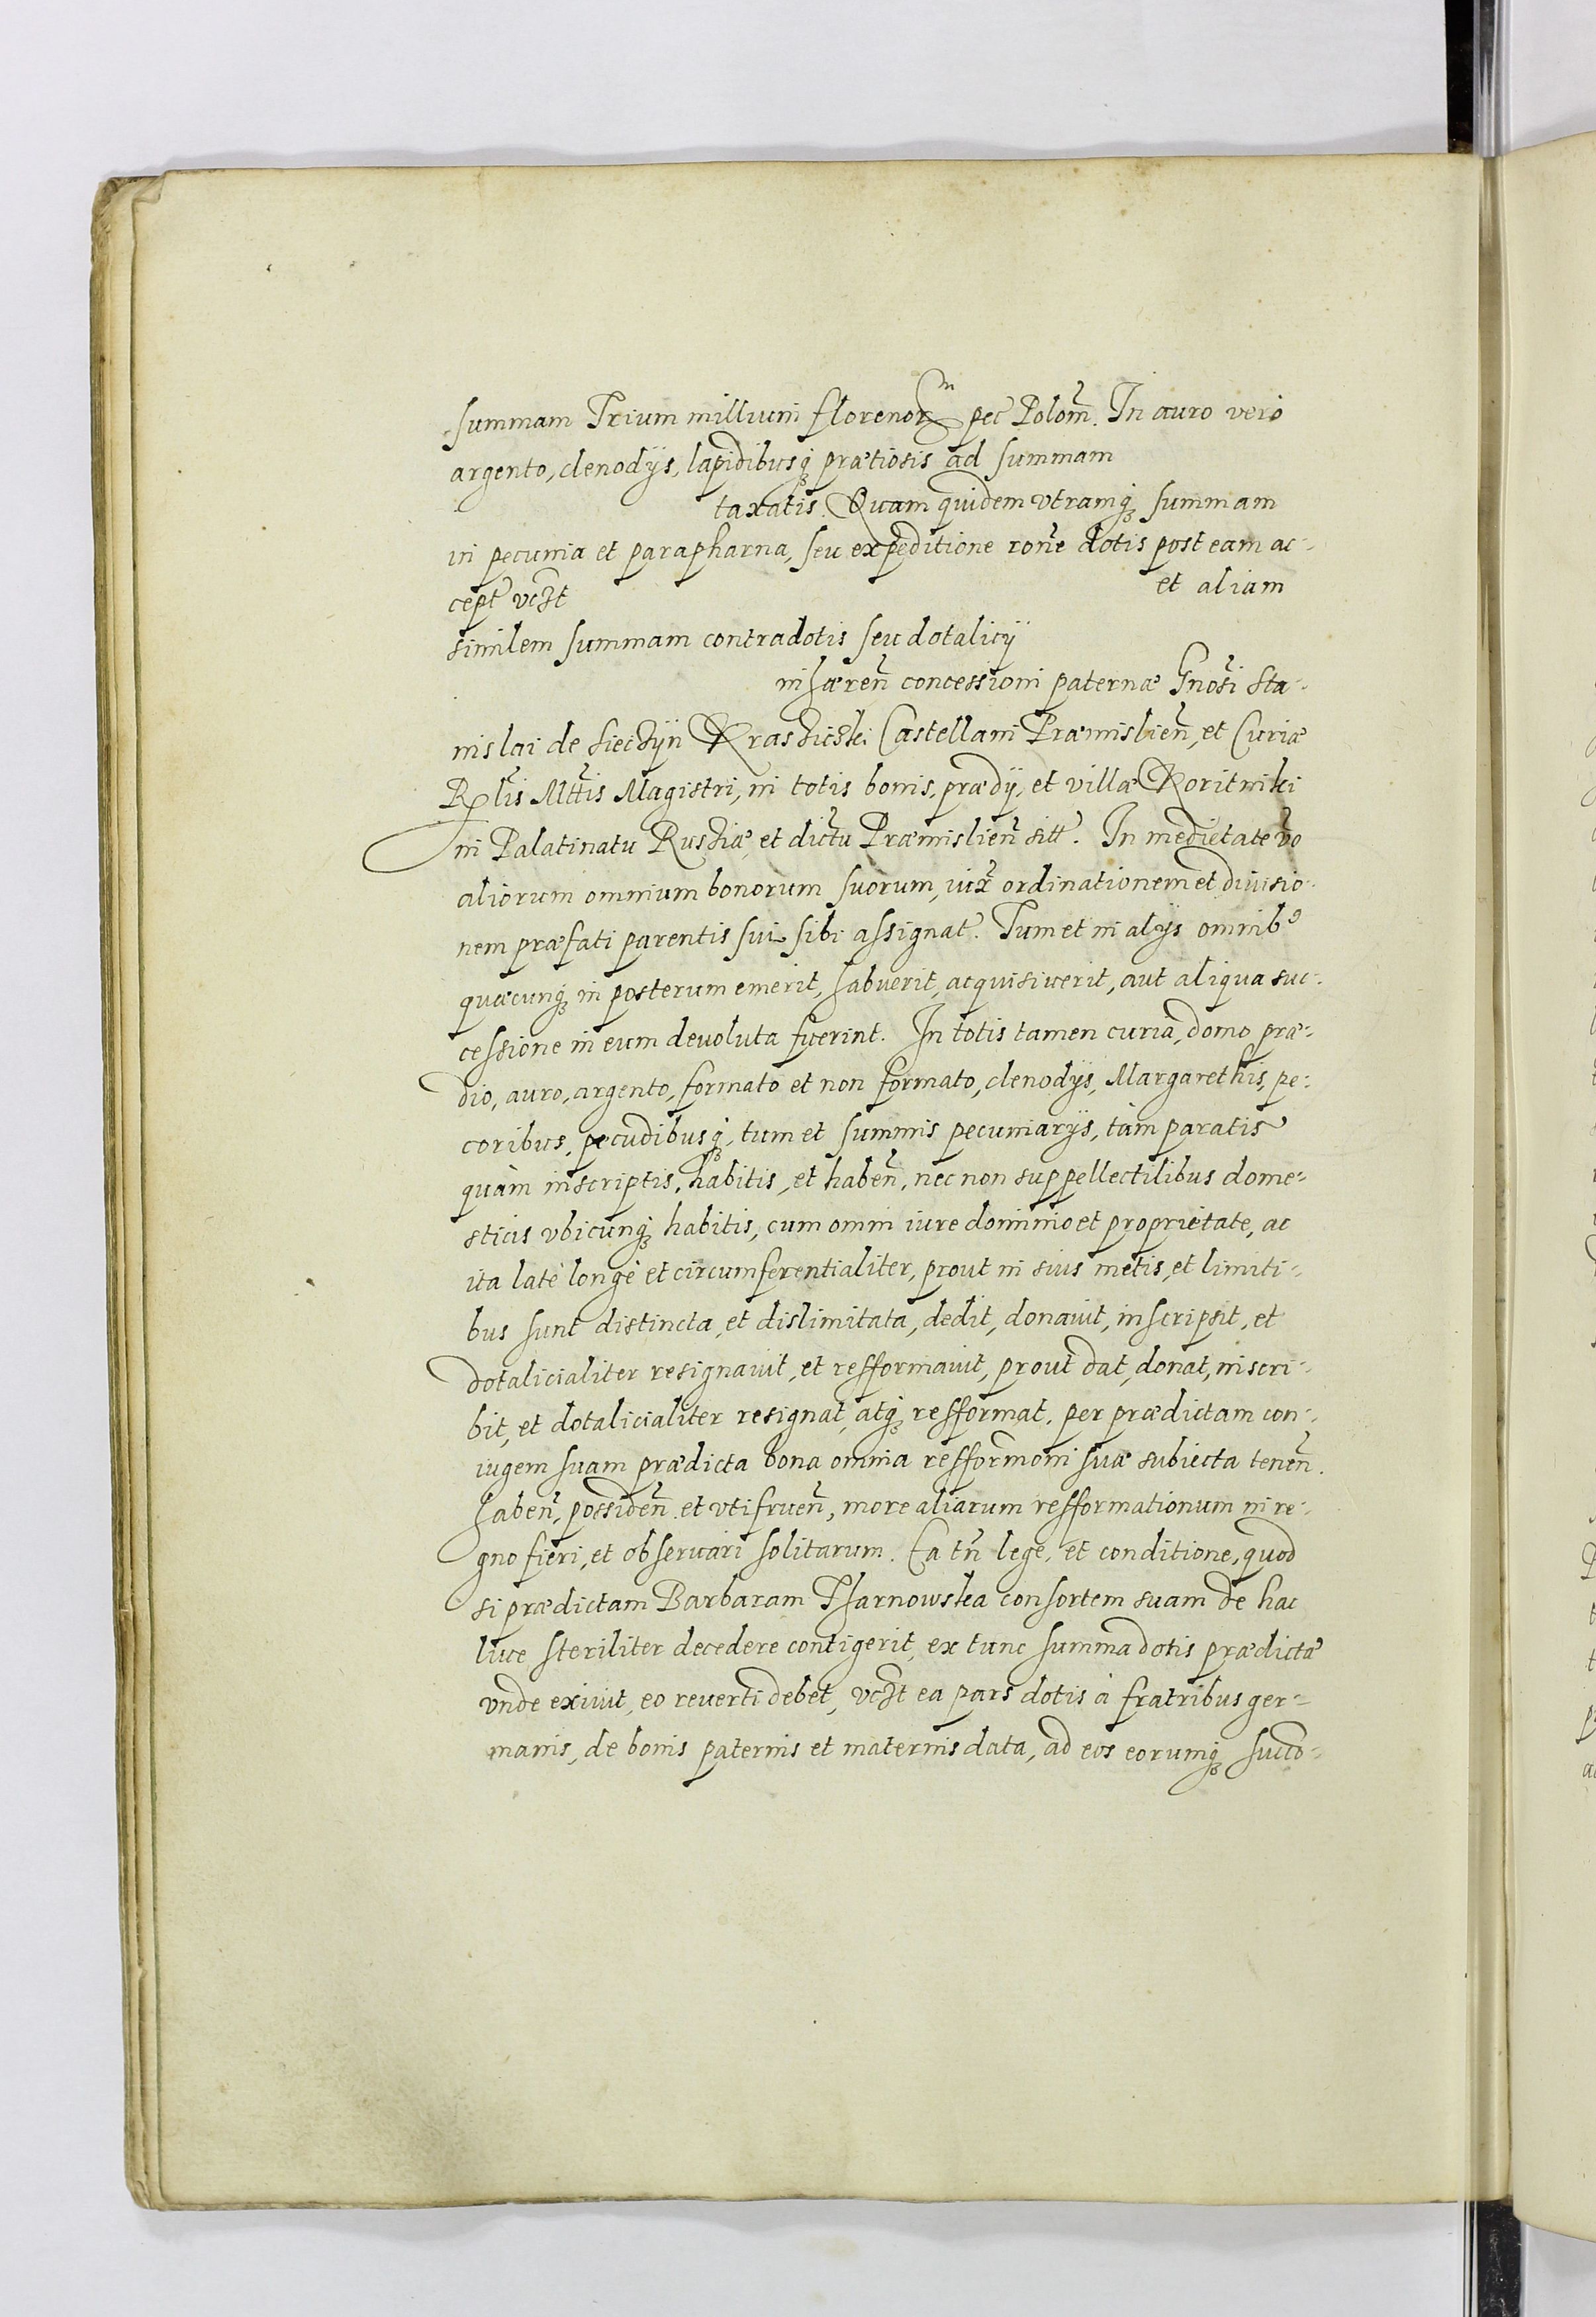 summam Trium millium florenorꝝ pec Polom. In auro vero
argento, clenodijs, lapidibusqꝫ prætiosis ad summam
taxatis. Quam quidem vtramqꝫ summam
in pecunia et parapharna, seu expeditione rone dotis post eam ac-
cept vczt et aliam
similem summam contradotis seu dotalicij
inhæren concessioni paternæ Gnosi Sta-
nislai de Sieczÿn Krasziczki Castellani Præmislien, et Curiæ
Rlis Mttis Magistri, in totis bonis, prædij, et villæ Koritniki
in Palatinatu Rusziæ, et dictu Præmislien sitt. In medietate vo
aliorum omnium bonorum suorum, iux ordinationem et diuisio-
nem præfati parentis sui sibi assignat. Tum et in alijs omnibꝰ
quæcunqꝫ in posterum emerit, habuerit, acquisiuerit, aut aliqua suc-
cessione in eum deuoluta fuerint. In totis tamen curia, domo præ-
dio, auro, argento, formato et non formato, clenodijs, Margarethis, pe-
coribus, pecudibusqꝫ, tum et summis pecuniarijs, tàm paratis
quàm inscriptis, habitis, et haben, nec non suppellectilibus dome-
sticis vbicunqꝫ habitis, cum omni iure dominio et proprietate, ac
ita latè longè et circumferentialiter, prout in suis metis, et limiti-
bus sunt distincta, et dislimitata, dedit, donauit, inscripsit, et
dotalicialiter resignauit, et refformauit, prout dat, donat, inscri-
bit, et dotalicialiter resignat, atqꝫ refformat, per prædictam con-
iugem suam prædicta bona omnia refformoni suæ subiecta tenen.
haben, possiden et vtifruen, more aliarum refformationum in re-
gno fieri, et obseruari solitarum. Ea tn lege, et conditione, quod
si prædictam Barbaram Tharnowska consortem suam de hac
luce steriliter decedere contigerit, ex tunc summa dotis prædictæ
vnde exiuit, eo reuerti debet, vczt ea pars dotis à fratribus ger-
manis, de bonis paternis et maternis data, ad eos eorumqꝫ succo-